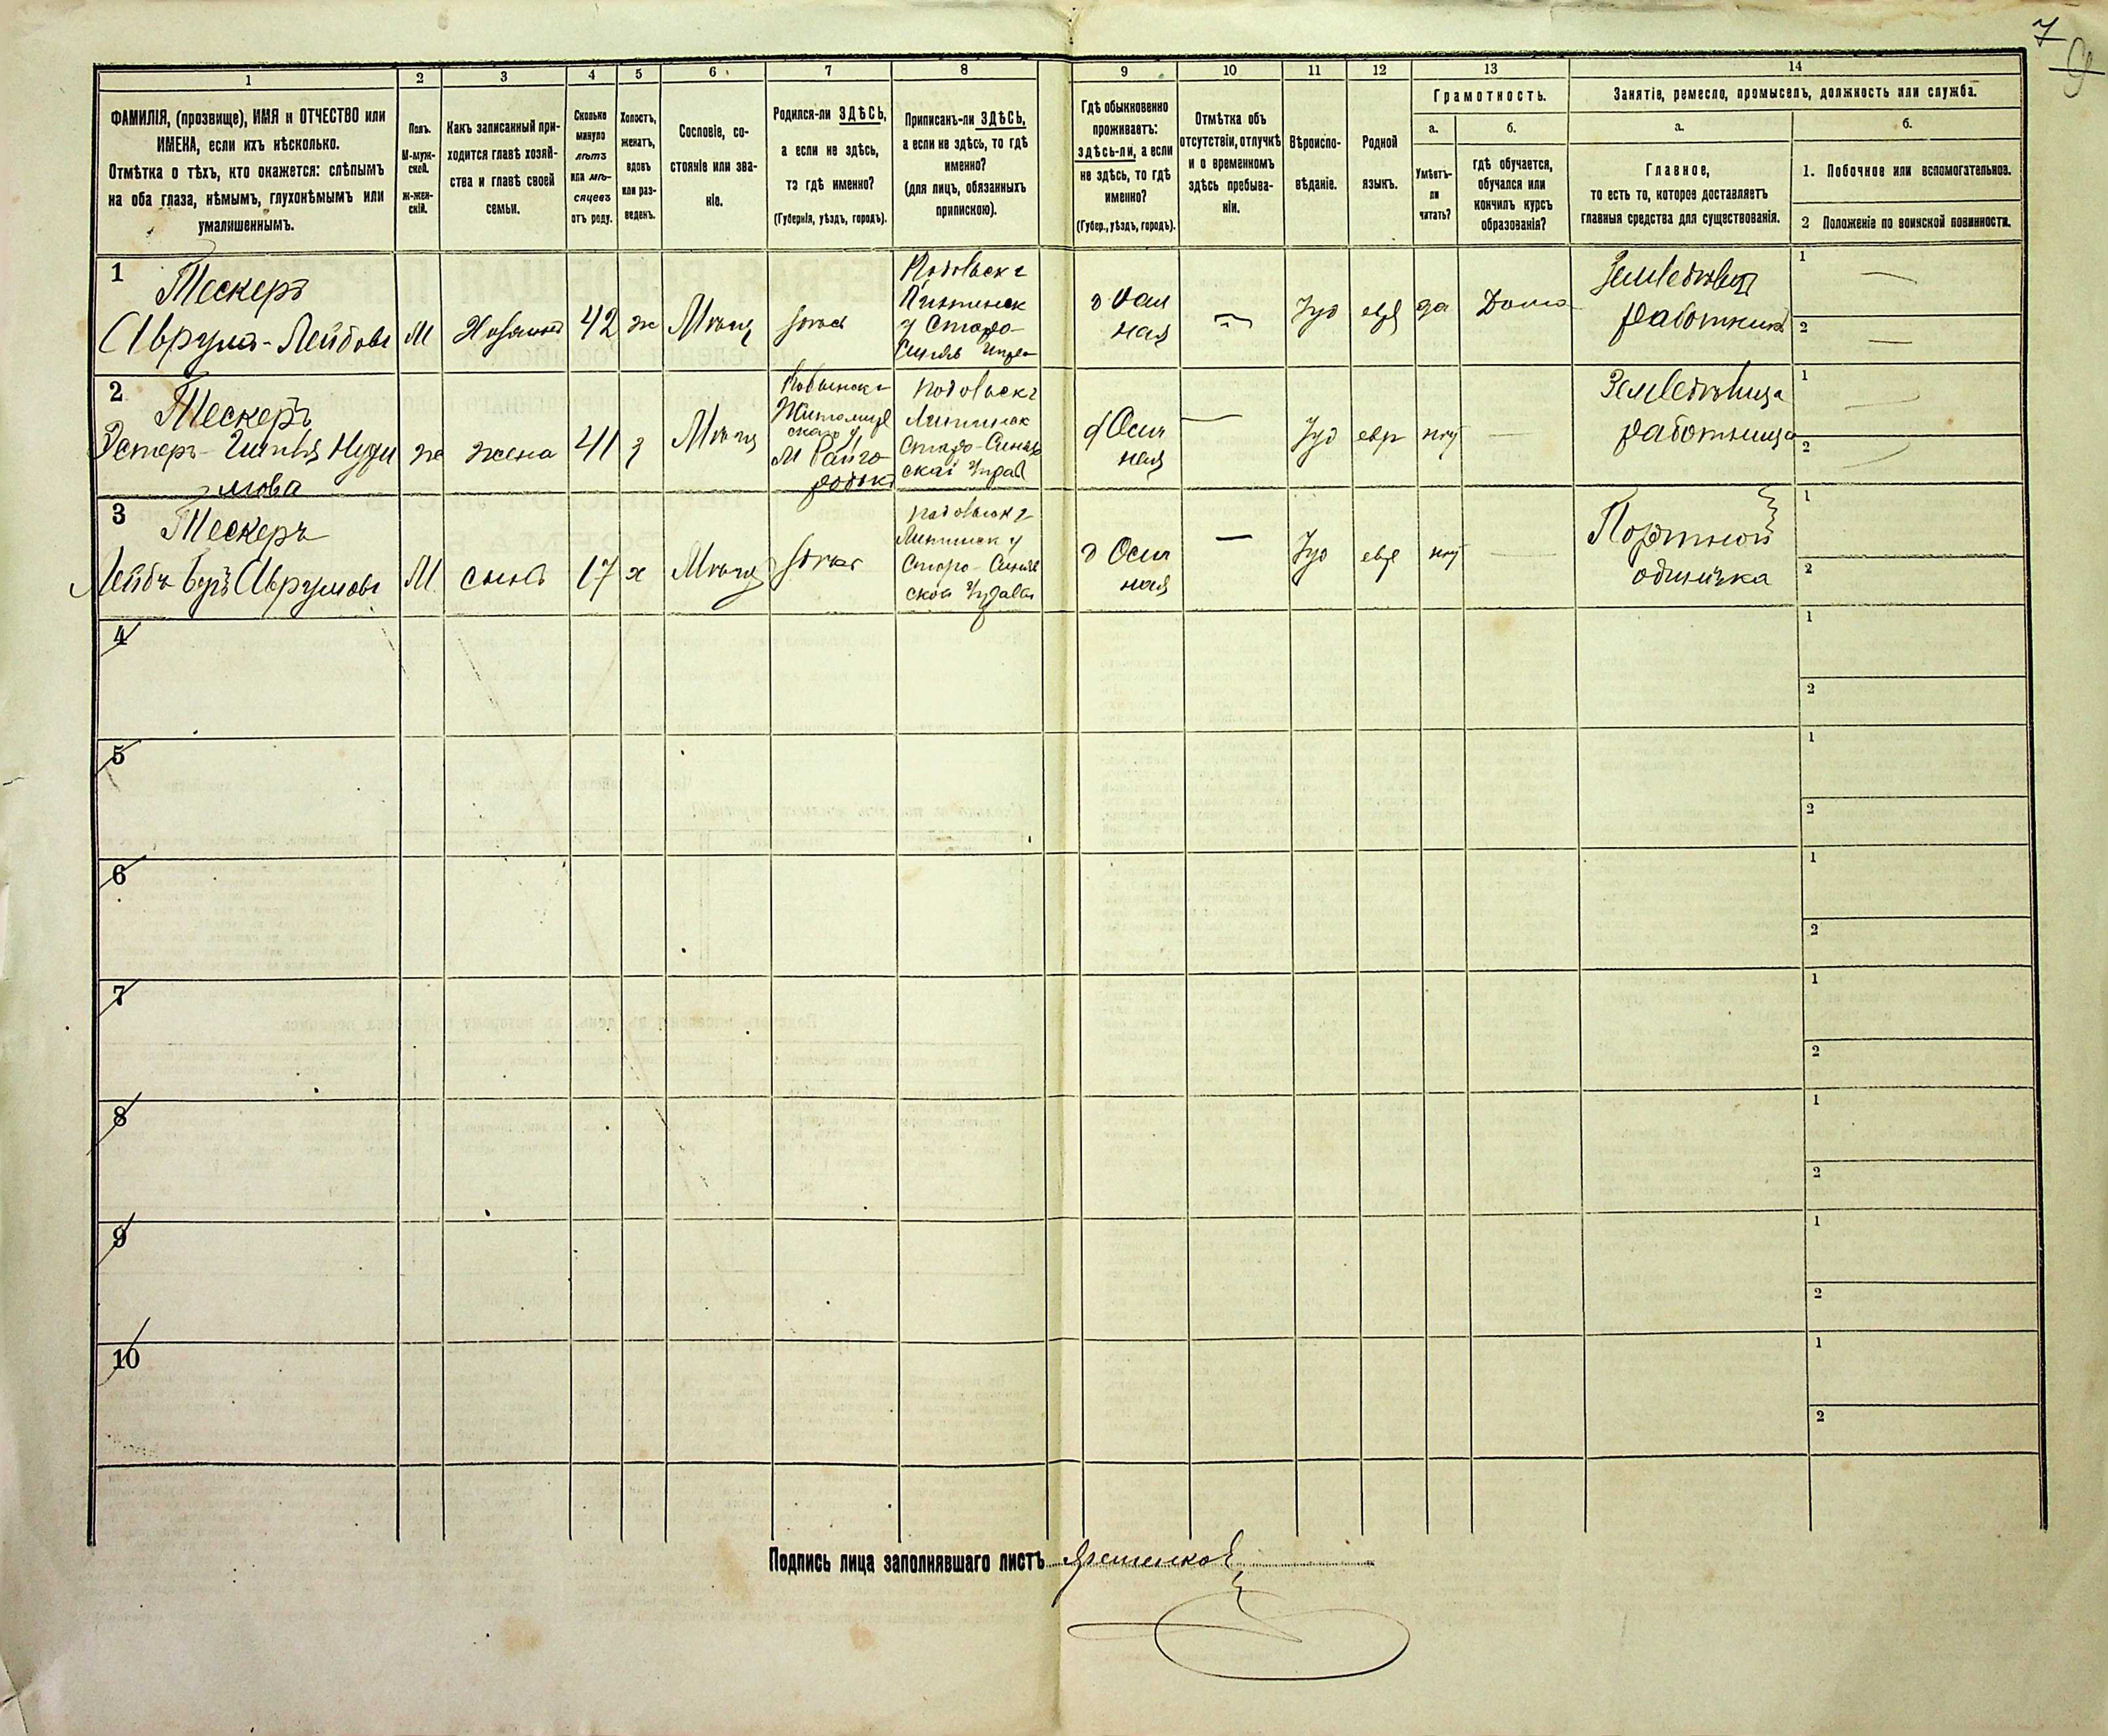 7
9
1
2
3
4
5
6
7
8
9
10
11
12
13
14
ФАМИЛІЯ, (прозвище), ИМЯ и ОТЧЕСТВО или
ИМЕНА, если ихъ нѣсколько.
Отмѣтка о тѣхъ, кто окажется: слѣпымъ
на оба глаза, нѣмымъ, глухонѣмымъ или
умалишеннымъ.
Полъ.
М-муж-
ской.
Ж-жен-
скій.
Какъ записанный при-
ходится главѣ хозяй-
ства и главѣ своей
семьи.
Сколько
минуло
лѣтъ
или мѣ-
сяцевъ
отъ роду.
Холостъ,
женатъ,
вдовъ
или раз-
веденъ.
Сословіе, со-
стояніе или зва-
ніе.
Родился-ли ЗДѢСЬ,
а если не здѣсь,
то гдѣ именно?
(Губернія, уѣздъ, городъ).
Приписанъ-ли ЗДѢСЬ,
а если не здѣсь, то гдѣ
именно?
(для лицъ, обязанныхъ
припискою).
Гдѣ обыкновенно
проживаетъ:
здѣсь-ли, а если
не здѣсь, то гдѣ
именно?
(Губер., уѣздъ, городъ).
Отмѣтка объ
отсутствіи, отлучкѣ
и о временномъ
здѣсь пребыва-
ніи.
Вѣроиспо-
вѣданіе.
Родной
языкъ.
Грамотность.
а.
Умѣетъ-
ли
читать?
б.
гдѣ обучается,
обучался или
кончилъ курсъ
образованія?
Занятіе, ремесло, промыселъ, должность или служба.
а.
Главное,
то есть то, которое доставляетъ
главныя средства для существованія.
б.
1. Побочное или вспомогательное.
2 Положеніе по воинской повинности.
1
Тескеръ
Аврумъ-Лейбовъ
М
42
ж
Мѣщ
д
ная
—
Іуд
евр
да
Дома
работникъ
1 —
2 —
2
Тескеръ
Эстеръ-
мова
ж
жена
41
з
Мѣщ
Житомир
скаго у
М
Подольск г
Литинск
Старо-Синяв
ской Управ
д Осич
ная
—
Іуд
евр
нѣт
—
Земледѣлица
работница
1
2
3
Тескеръ
Лейбъ Беръ Аврумовъ
М
сынъ
17
х
Мѣщ
Подольск г
Литинск у
Старо-Синяв
ской Управы
д Осич
ная
—
Іуд
евр
нѣт
—
Портной
одиночка
1
2
4
1
2
5
1
2
6
1
2
7
1
2
8
1
2
9
1
2
10
1
2
Подпись лица заполнявшаго листъ